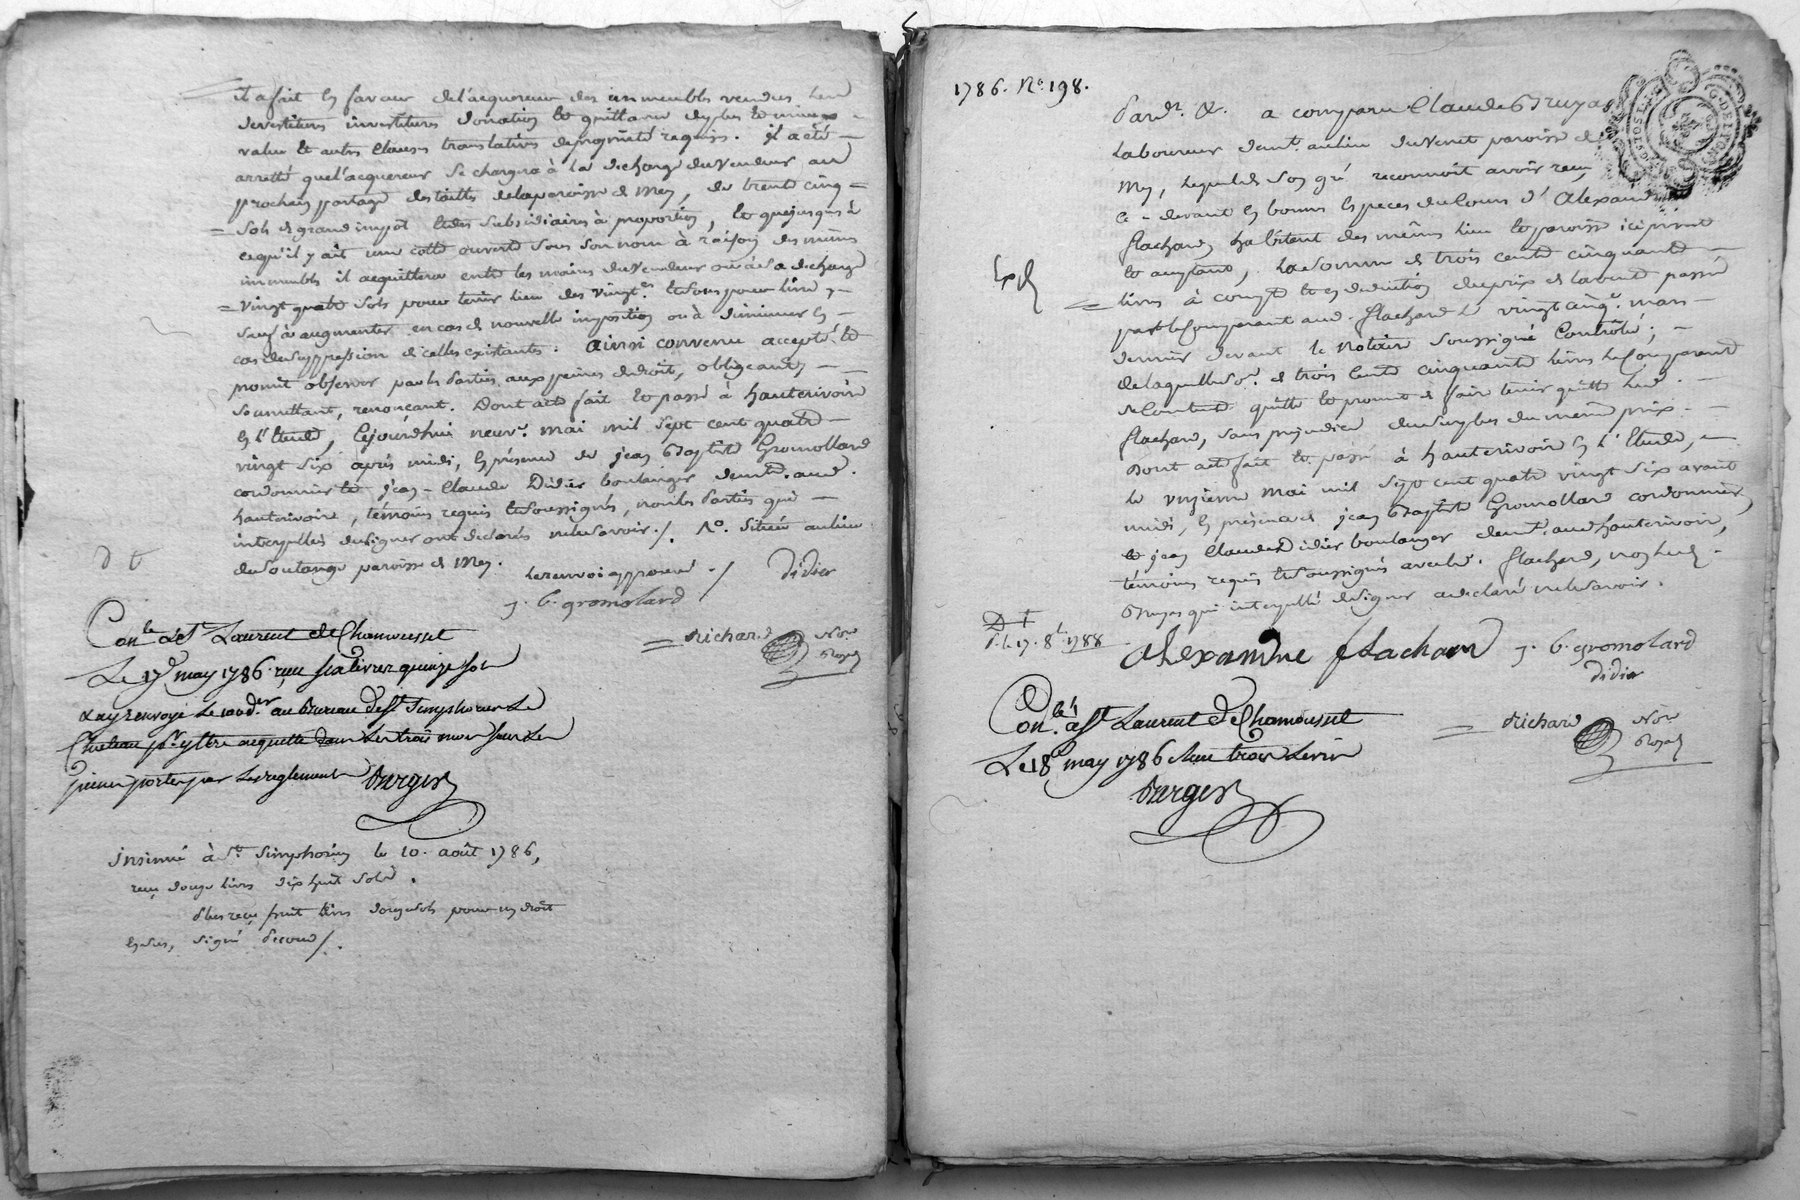 il a fait en faveur de l'acquereur des immeubles vendus
devestiture investiture donation et quittance du plus et mieux
value et autres clauses translatives de proprieté requises. il a été
arretté que l'acquereur se chargera à la decharge du vendeur au
prochain partage des tailles de la paroisse de Mey, de trente cinq
sols de grand impot et des subsidiaires à proportion, et que jusques à
ce qu'il y ait une cotte ouverte sous son nom à raison des mêmes
immeubles il acquittera entre les mains du vendeur ou à sa decharge
vingt quatre sols pour tenir lieu des vingt.es
sauf à augmenter en cas de nouvelle imposition ou à diminuer en
cas de suppression de celles existantes. Ainsi convenu accepté et
promit observer par les parties aux peines de droit, obligeant,
soumettant, renonçant. Dont acte fait et passé à hauterivoire
en l'Etude, cejourd'hui neuv.e mai mil sept cent quatre
vingt six après midi, en présence de jean Baptiste Gromollard
cordonnier et jean-Claude Didier boulanger demt. aud.
hauterivoire, témoins requis et soussignés, non les parties qui
interpellés de signer ont declarés ne le savoir ./. situés au lieu
de Soulange paroisse de Mey.
le renvoi approuvé ./ Didier
j. b. gromolard
Richard Nore Royal
Con.lé à St Laurent de Chamousset
Le 17 may 1786 reçu six livres quinze sols
& ay renvoyé Le 100.d.er au Bureau de St Simphorien Le
Chateau pr. y être acquitté dans Les trois mois sous Les
peines portées par Les reglements Barges
Insinué à St. Simphorien le 10. août 1786,
reçu douze livres dix huit sols.
Plus reçu huit livres douze sols pour un droit
en sus, signé
1786. No. 198.
Pard.t &. a comparu Claude Bruyas
Laboureur demt. au lieu du Venet paroisse de
Mey, lequel de son gré reconnoit avoir reçu
ci-devant en bonnes especes du Cours d'Alexandre
flachard habitant des mêmes lieu et paroisse ici present
et acceptant, la somme de trois cents cinquante
Exp.
livres à compte et en deduction du prix de la vente passée
par le Comparant aud. flachard le vingt cinq.e mars
dernier devant le Notaire soussigné Contrôlé;
de laquelle so.e de trois cents cinquante livres le Comparant
se Contente quitte et promet de faire tenir quitte led.
flachard, sans prejudice du surplus du même prix.
Dont acte fait et passé à hauterivoire en l'Etude,
le onzieme mai mil sept cent quatre vingt six avant
midi, en présence de jean Baptiste Gromollard cordonnier
et jean Claude Didier boulanger demt. aud. hauterivoire,
témoins requis et soussignés avec led. flachard, non led.
Bruyas qui interpellé de signer a declaré ne le savoir.
le 17. 8b. 1788
Alexandre flachard j. b. gromolard
didier
Richard Nore Royal
Con.lé à St Laurent de Chamousset
Le 18 may 1786 Reçu trois Livres
Barges